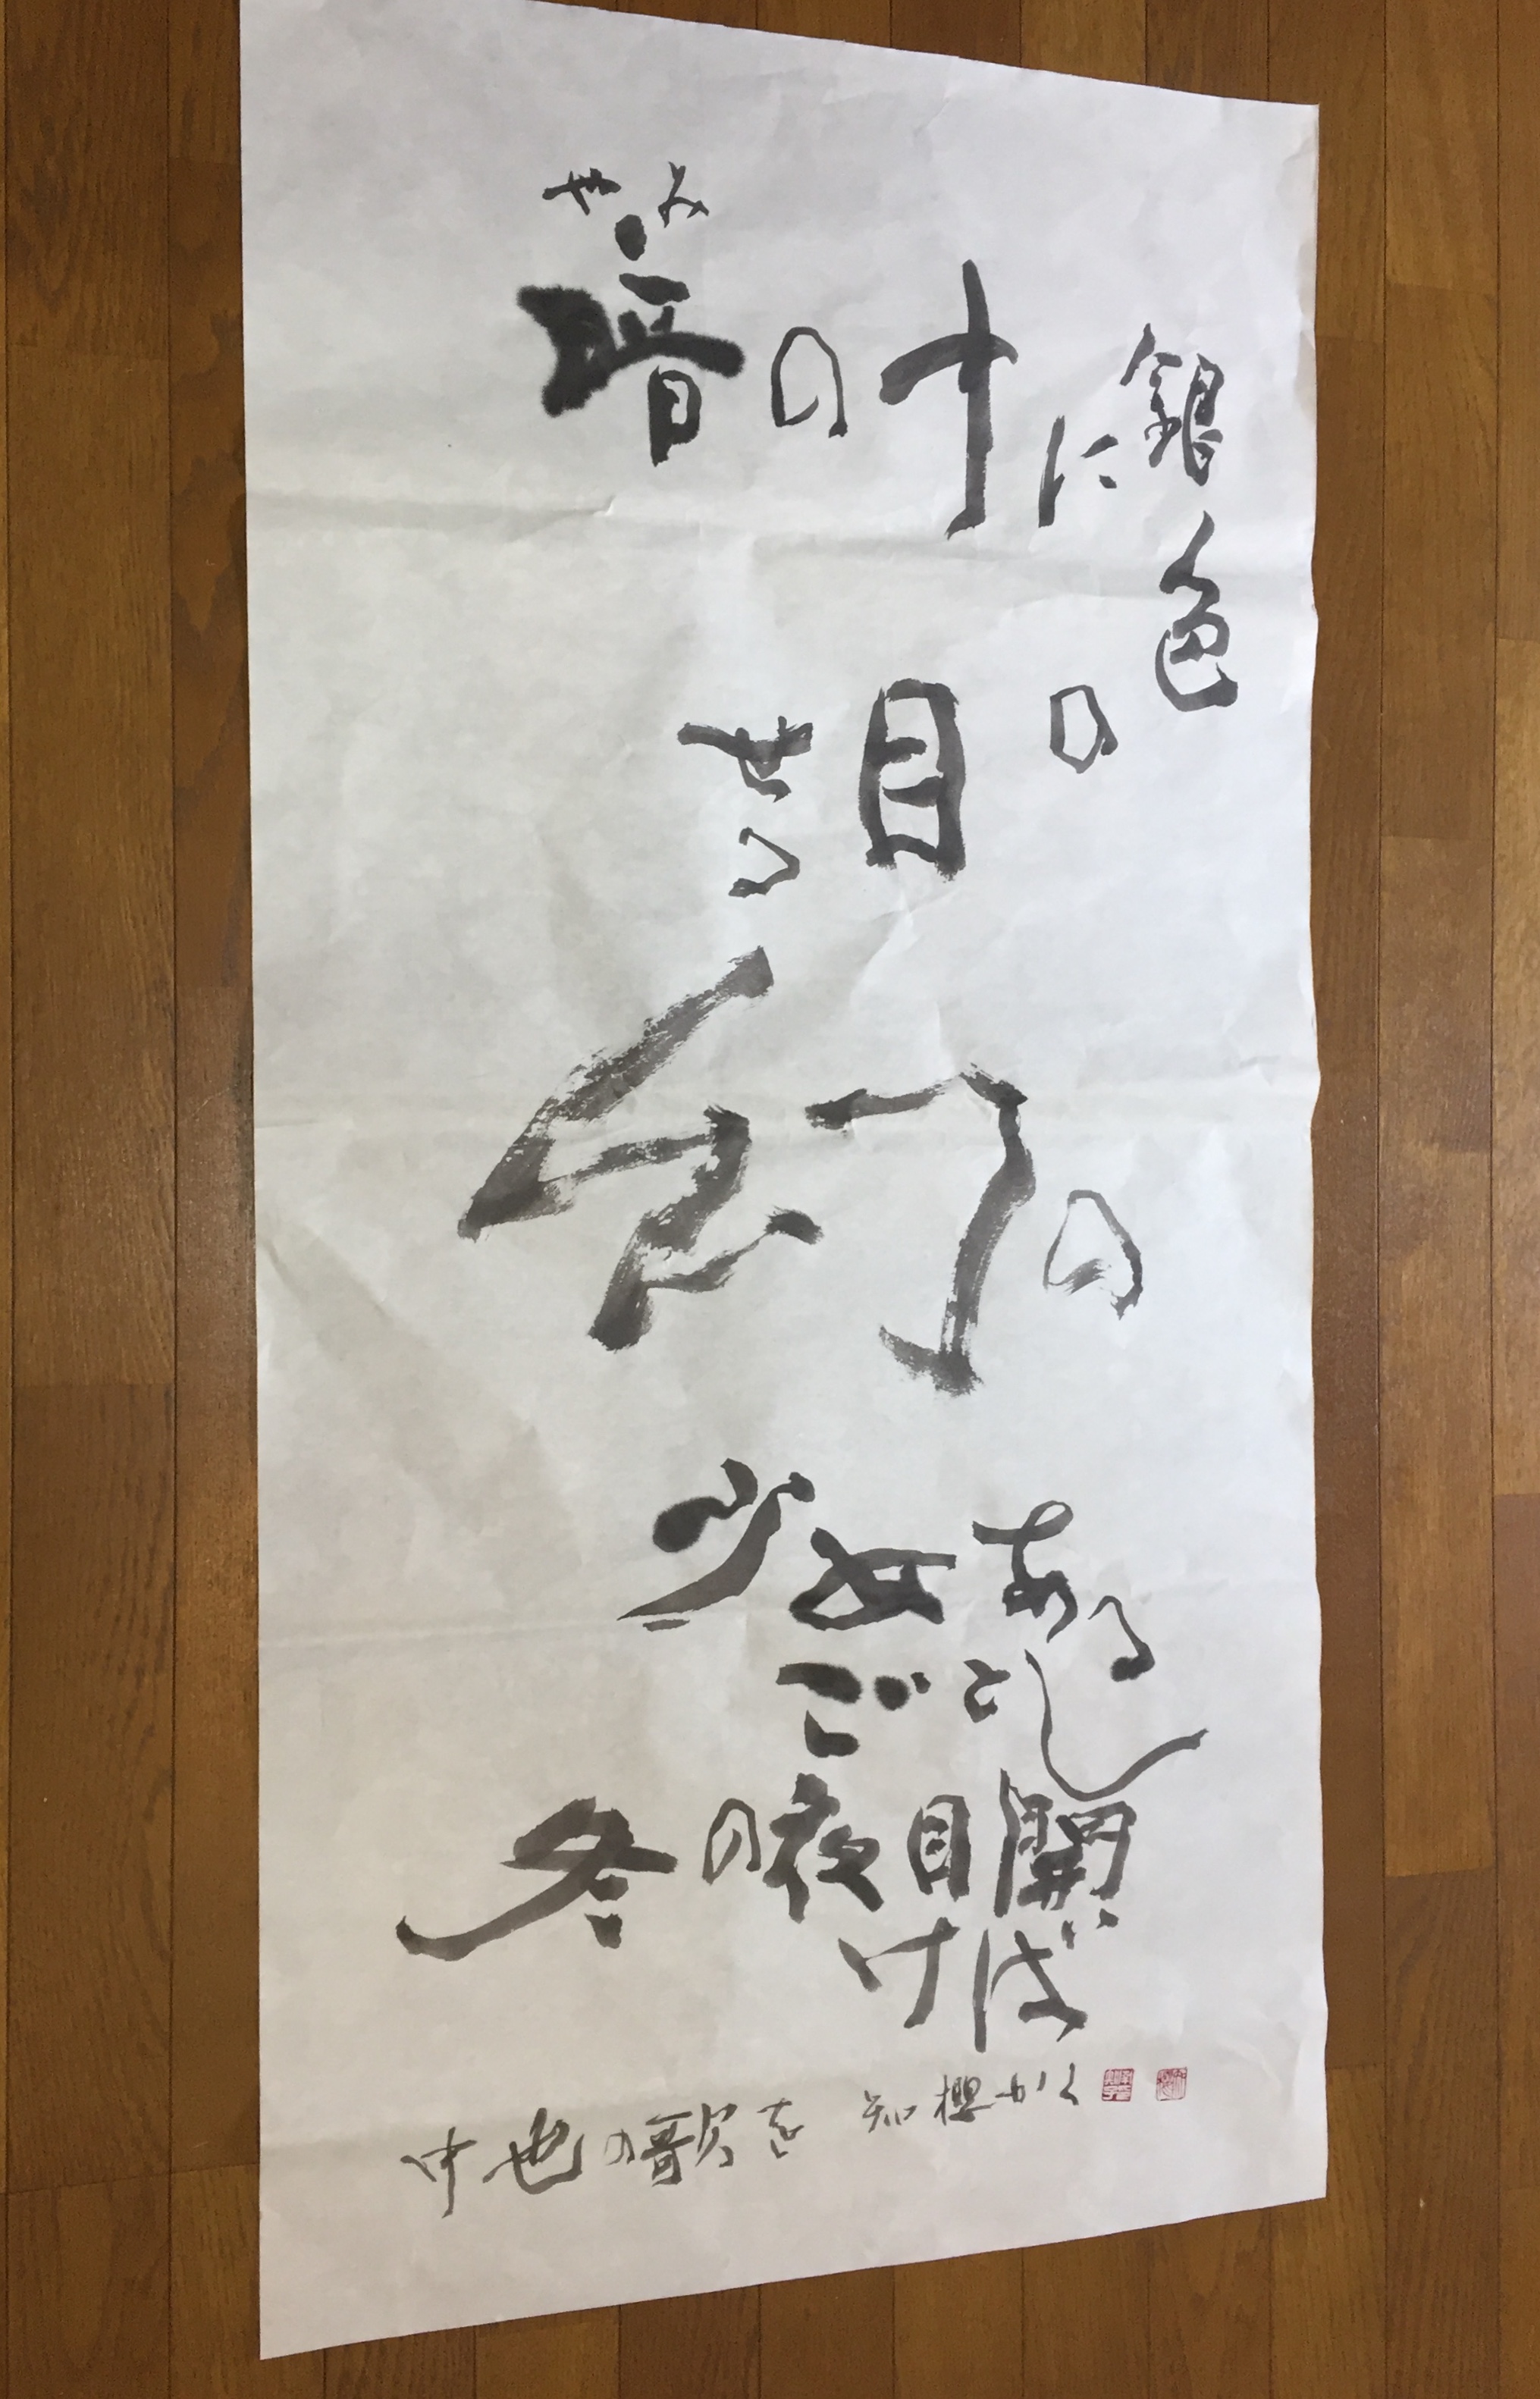 やみ
暗の中に
銀色の
目せる
幻の
少女ある
ごとし
冬の夜目開
けば
中也の歌を 知櫻かく